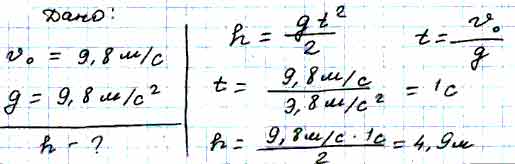 Дано:
v₀ = 9,8 м/с
g = 9,8 м/с²
h - ?
h = gt²/2 t = v₀/g
t = 9,8 м/с / 9,8 м/с² = 1с
h = 9,8 м/с · 1с / 2 = 4,9м